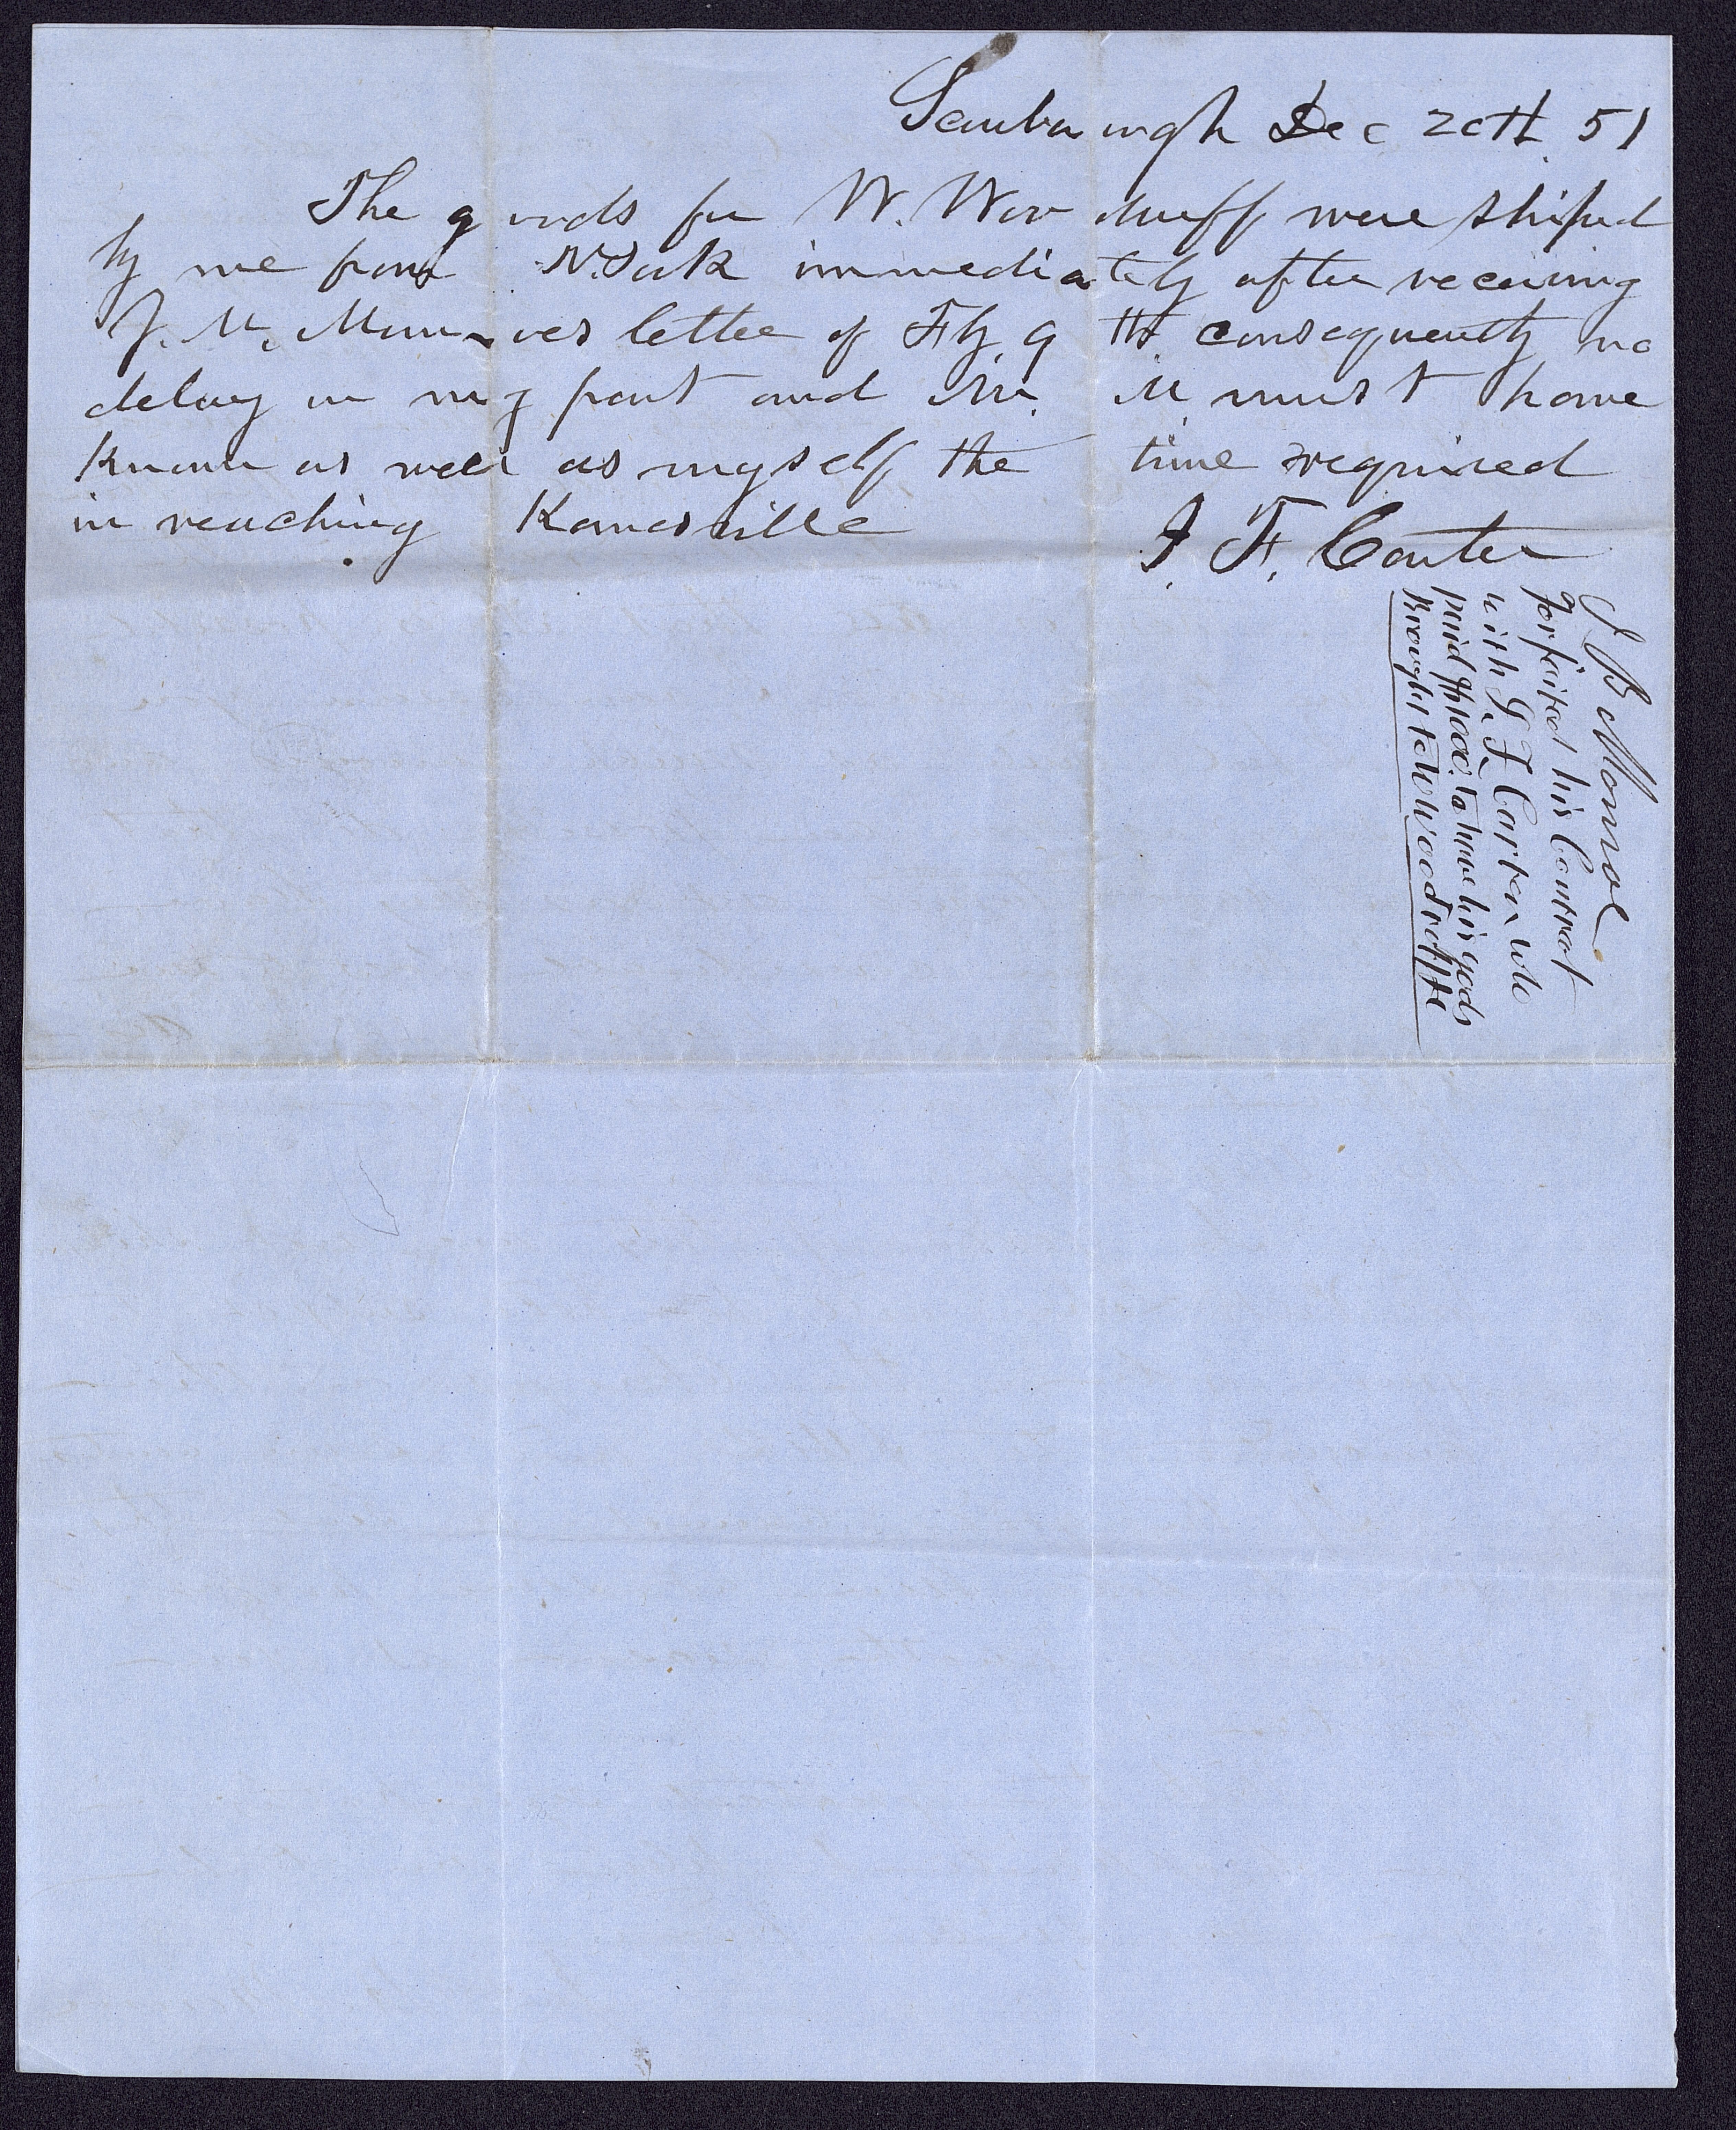 Scarborough Dec 20th 51
The goods for W. Woodruff were shiped
by me from N. York immediately after receiving
J. M. Monroes letter of Fby. 9th consequently no
delay on my part and Mr. M must have
known as well as myself the time required
in reaching Kanesville
I. F. Carter
J B Monroe
forfeited his Contract
with I. F. Carter who
paid $1500. to have his gods
Brought to W Woodruff